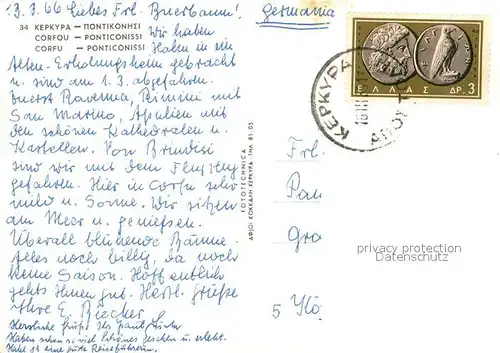 13.3.66 Liebes Frl. Bauerbaum!
34 ΚΕΡΚΥΡΑ — ΠΟΝΤΙΚΟΝΗΣΙ
CORFOU — PONTICONISSI
CORFU — PONTICONISSI
Wir haben
in ein
Alten-Erholungsheim gebracht
u. sind am 1.3. abgefahren.
Zuerst Ravenna, Rimini mit
San Marino, Apulien mit
den schönen Kathedralen u.
Kastellen. Von Brindisi
sind wir mit dem
gefahren. Hier in Corfu sehr
mild u. Sonne. Wir sitzen
am Meer u. genießen.
Überall blühende Bäume.
Alles noch billig, da noch
keine Saison. Hoffentlich
gehts Ihnen gut. Herzl. Grüße
Ihre E. Biecher
Herzliche Grüße Ihr
Haben schon so viel Schönes gesehen u. erlebt.
ist eine gute Reiseführerin.
FOTOTECHNICA
ΑΦΟΙ ΚΟΚΚΑΛΗ ΚΕΡΚΥΡΑ ΤΗΛ. 81-05
Germania
ΕΛΛΑΣ ΔΡ. 3
ΚΕΡΚΥΡΑ
Frl.
Pau
Gra
5 Kö
privacy protection
Datenschutz